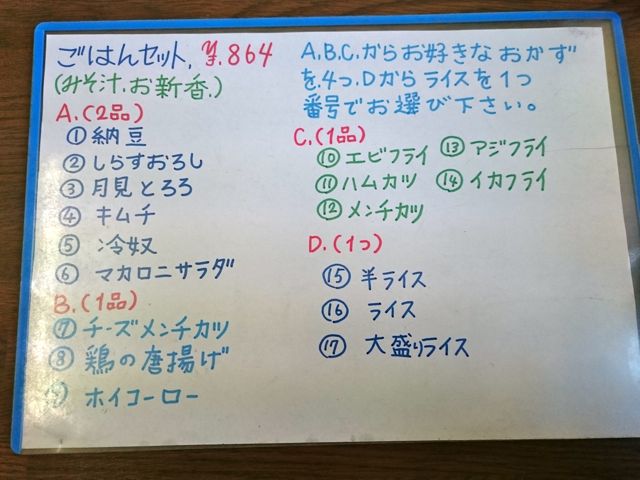 ごはんセット, ¥.864
(みそ汁.お新香.)
A.(2品)
① 納豆
② しらすおろし
③ 月見とろろ
④ キムチ
⑤ 冷奴
⑥ マカロニサラダ
B.(1品)
⑦ チーズメンチカツ
⑧ 鶏の唐揚げ
⑨ ホイコーロー
A.B.C.からお好きなおかず
を.4つ.Dからライスを1つ
番号でお選び下さい。
C.(1品)
⑩ エビフライ ⑬ アジフライ
⑪ ハムカツ ⑭ イカフライ
⑫ メンチカツ
D.(1つ)
⑮ 半ライス
⑯ ライス
⑰ 大盛りライス